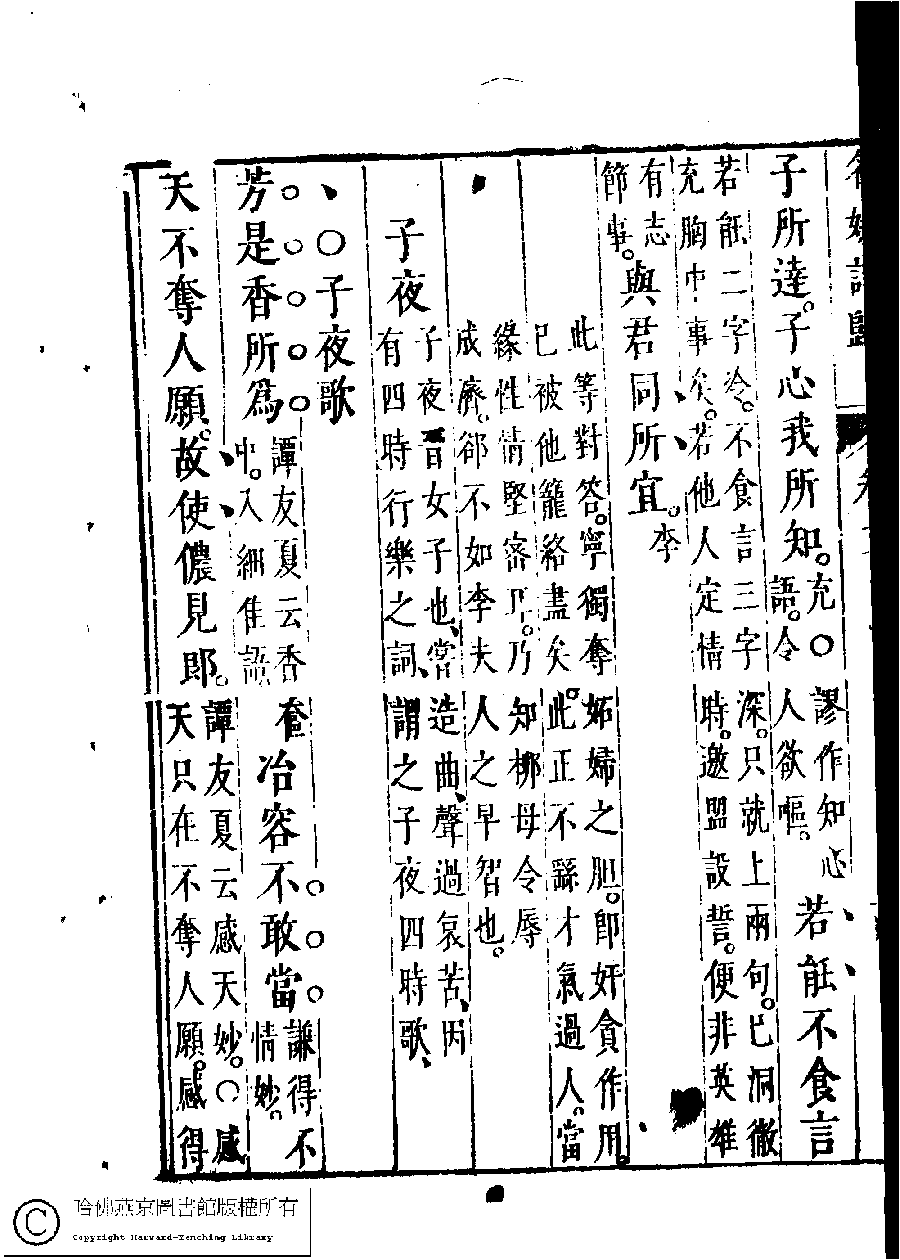 子所達。子心我所知。充○謬作知心語。令人欲嘔。若能不食言
若能二字冷。不食言三字深。只就上兩句。已洞徹
充胸中事矣。若他人定情時。邀盟設誓。便非英雄
有志節事。與君同所宜。李
此等對答。寧獨奪妬婦之胆。卽奸貪作用。
已被他籠絡盡矣。此正不繇才氣過人。當
緣性情堅密耳。乃知母令辱
成郤不如李夫人之早智也。
子夜 子夜晉女子也、嘗造曲、聲過哀苦、因
有四時行樂之詞、謂之子夜四時歌、
○子夜歌
芳是香所爲譚友夏云香奩中。入細佳語冶容不敢當謙得不情妙。
天不奪人願。故使儂見郎。譚友夏云感天妙。○感天只在不奪人願。感得
哈佛燕京圖書館版權所有
Copyright Harvard-Yenching Library